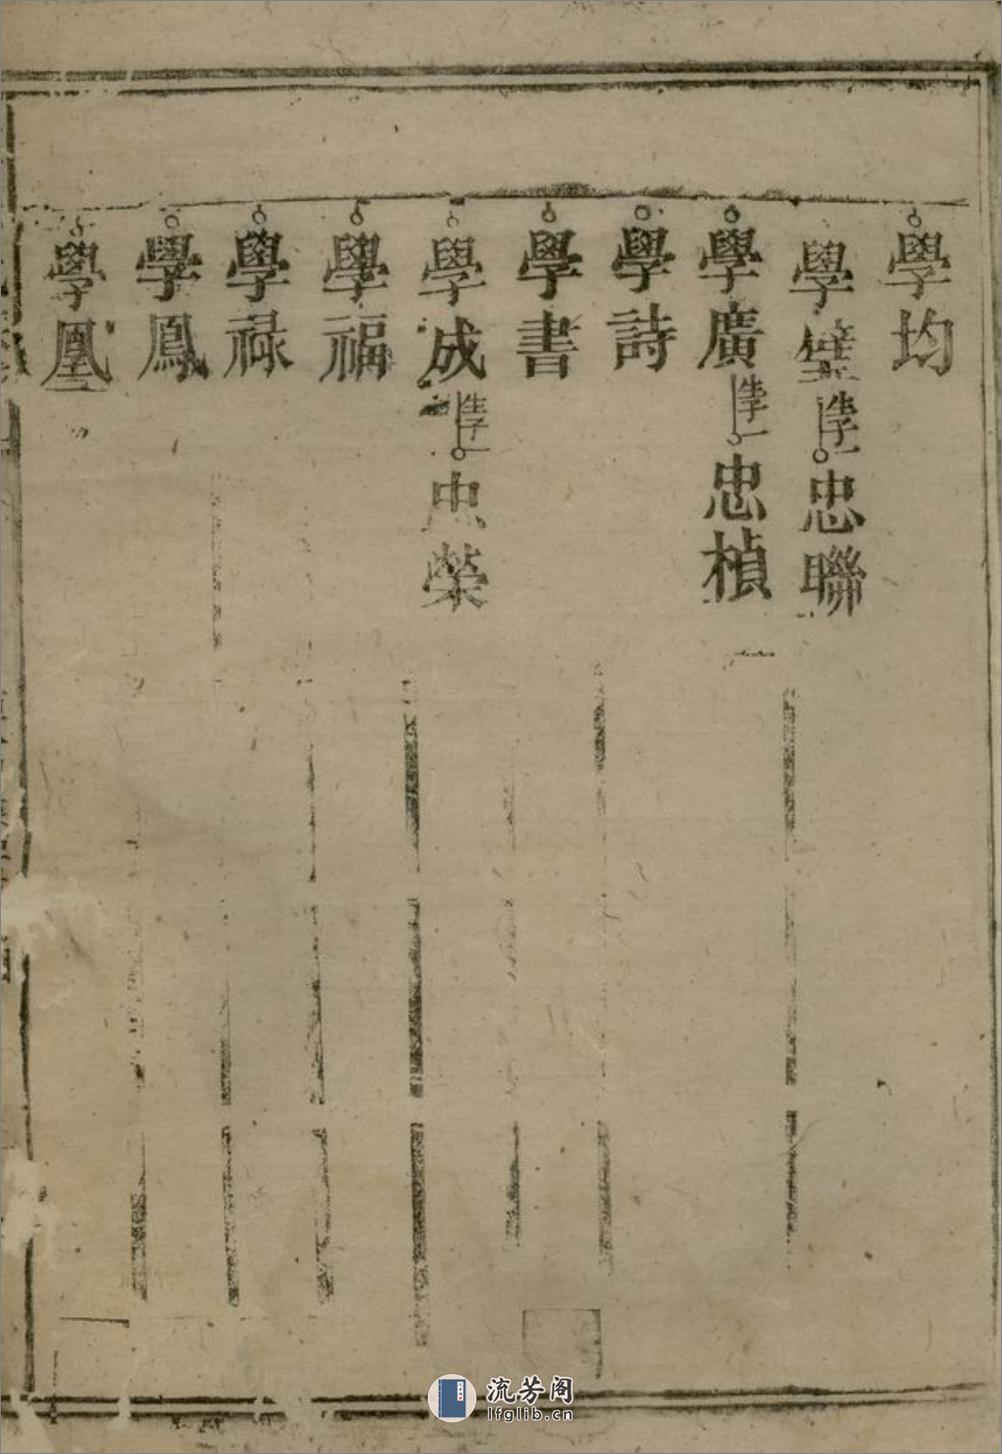 學均
學璧 子一 忠聯
學廣 子一 忠楨
學詩
學書
學成 子一 忠榮
學福
學祿
學鳳
學凰
流芳阁
lfglib.cn